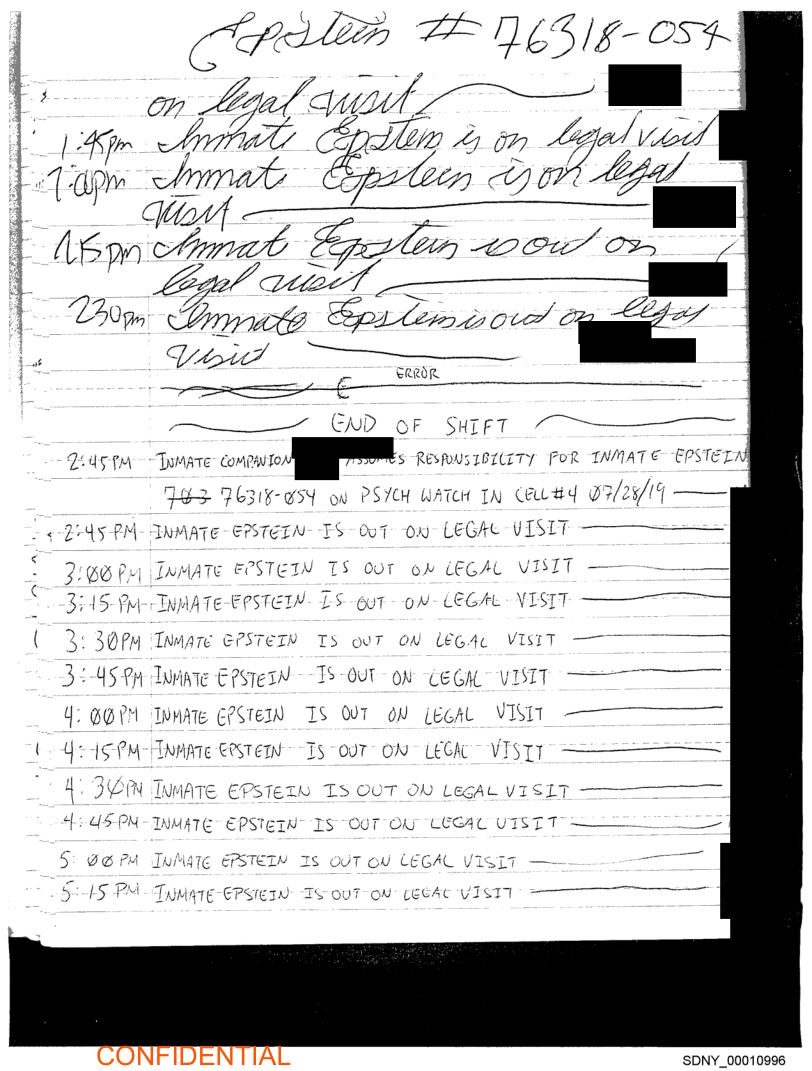 Epstein # 76318-054
on legal visit
1:45pm Inmate Epstein is on legal visit
Inmate Epstein is on legal
visit
Inmat Epstein is out on
legal visit
230pm Inmate Epstein is out on legal
visit
ERROR
END OF SHIFT
2:45PM INMATE COMPANION ASSUMES RESPONSIBILITY FOR INMATE EPSTEIN
703 76318-054 ON PSYCH WATCH IN CELL#4 07/28/19
2:45 PM INMATE EPSTEIN IS OUT ON LEGAL VISIT
3:00 PM INMATE EPSTEIN IS OUT ON LEGAL VISIT
3:15 PM INMATE EPSTEIN IS OUT ON LEGAL VISIT
3:30PM INMATE EPSTEIN IS OUT ON LEGAL VISIT
3:45PM INMATE EPSTEIN IS OUT ON LEGAL VISIT
4:00PM INMATE EPSTEIN IS OUT ON LEGAL VISIT
4:15PM INMATE EPSTEIN IS OUT ON LEGAL VISIT
4:30PM INMATE EPSTEIN IS OUT ON LEGAL VISIT
4:45PM INMATE EPSTEIN IS OUT ON LEGAL VISIT
5:00PM INMATE EPSTEIN IS OUT ON LEGAL VISIT
5:15PM INMATE EPSTEIN IS OUT ON LEGAL VISIT
CONFIDENTIAL
SDNY_00010996